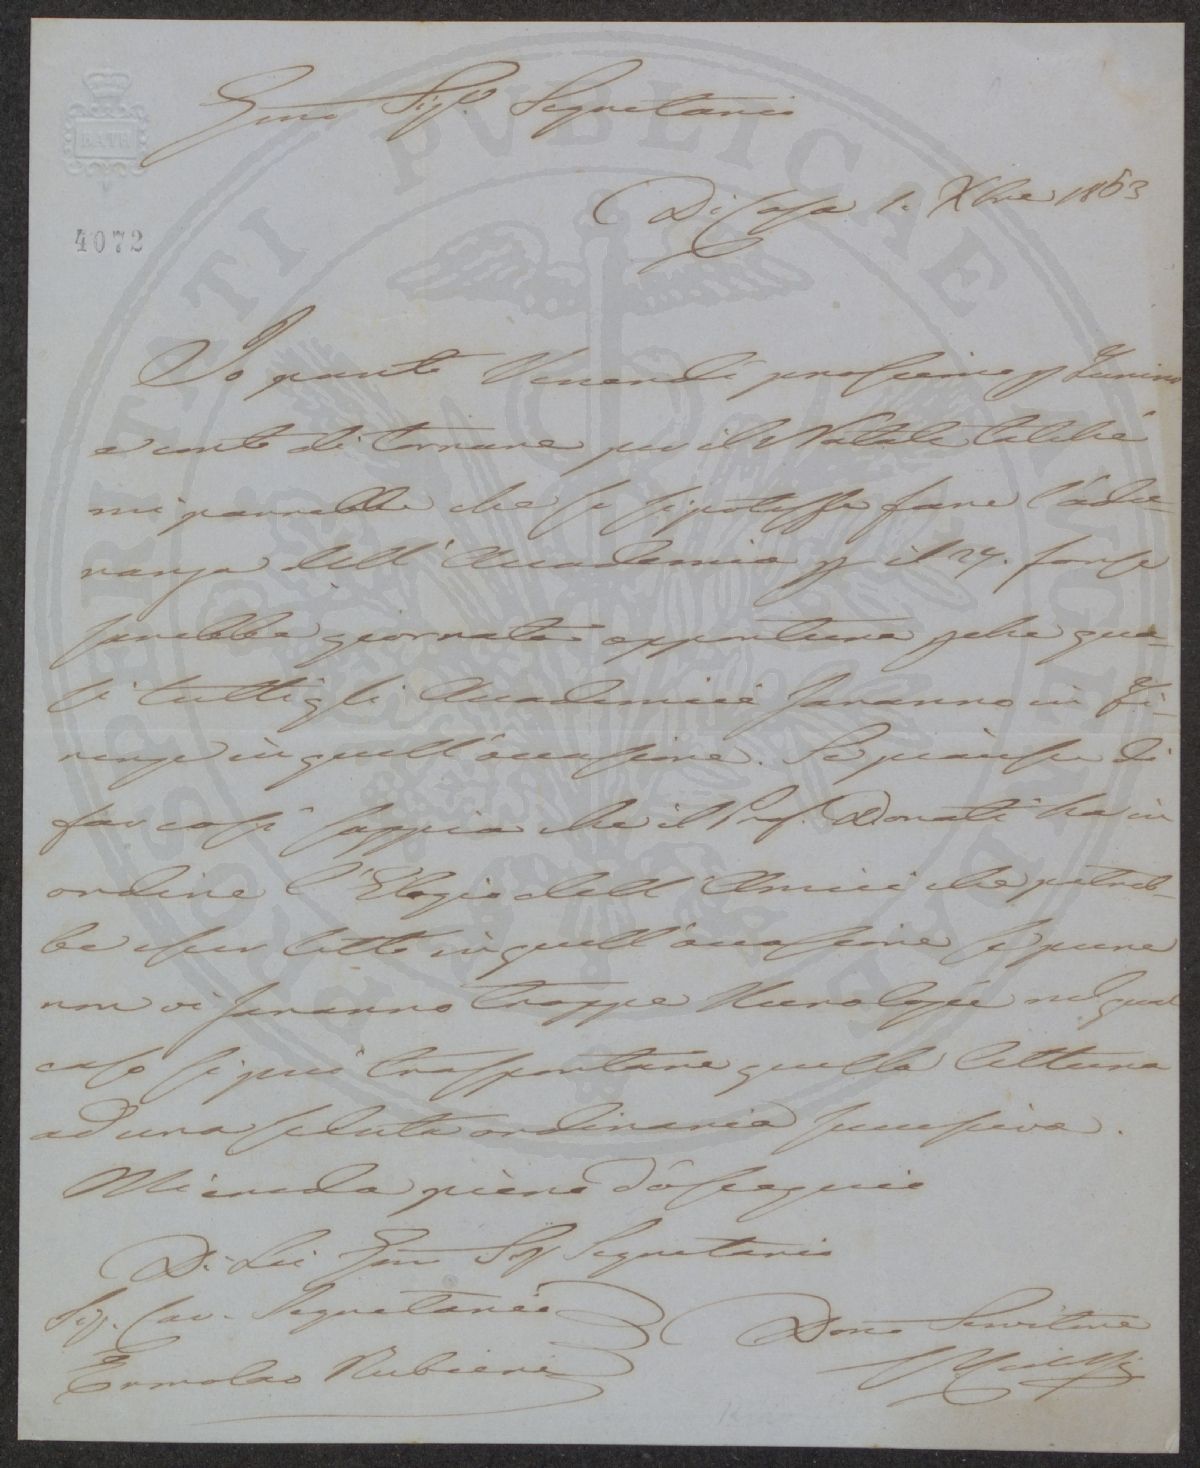 Gmo Sigr. Segretario
BATH
4072
Di Casa 1. Xbre 1863
Io parto Venerdì prossimo p Turino
e conto di tornare per il Natale talchè
mi parrebbe che se si potesse fare l'adu-
nanza dell'Accademia p il 27. forse
sarebbe giornata opportuna pche qua-
si tutti gli Accademici saranno in Fi-
renze in quell'occasione. Se pensasse di
far così sappia che il Prof. Donati ha in
ordine l'Elogio dell'Amici che potreb-
be esser letto in quell'occasione se pure
non vi saranno troppe Necrologie nel qual
caso si può trasportare quella lettura
ad una seduta ordinaria successiva.
Mi creda pieno d'ossequio
Di Lei Gmo Sig Segretario
Sig. Cav. Segretario
Ermolao Rubieri
Devo Servitore
OSPERITATI PVBLICAE AVGENDAE